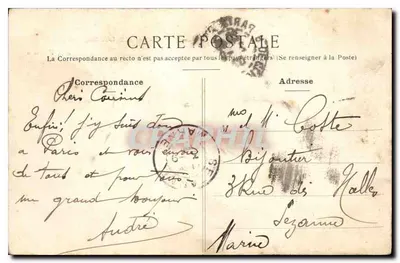 CARTE POSTALE
La Correspondance au recto n'est pas acceptée par tous pays étrangers (Se renseigner à la Poste)
Correspondance
Adresse
Chers Cousins
Enfin j'y suis donc
a Paris et vous envoie
de tous et pour tous
un grand bonjour
André
et Mme Cotte
Bijoutier
3 Rue des Halles
Sezanne
Marne
PARIS